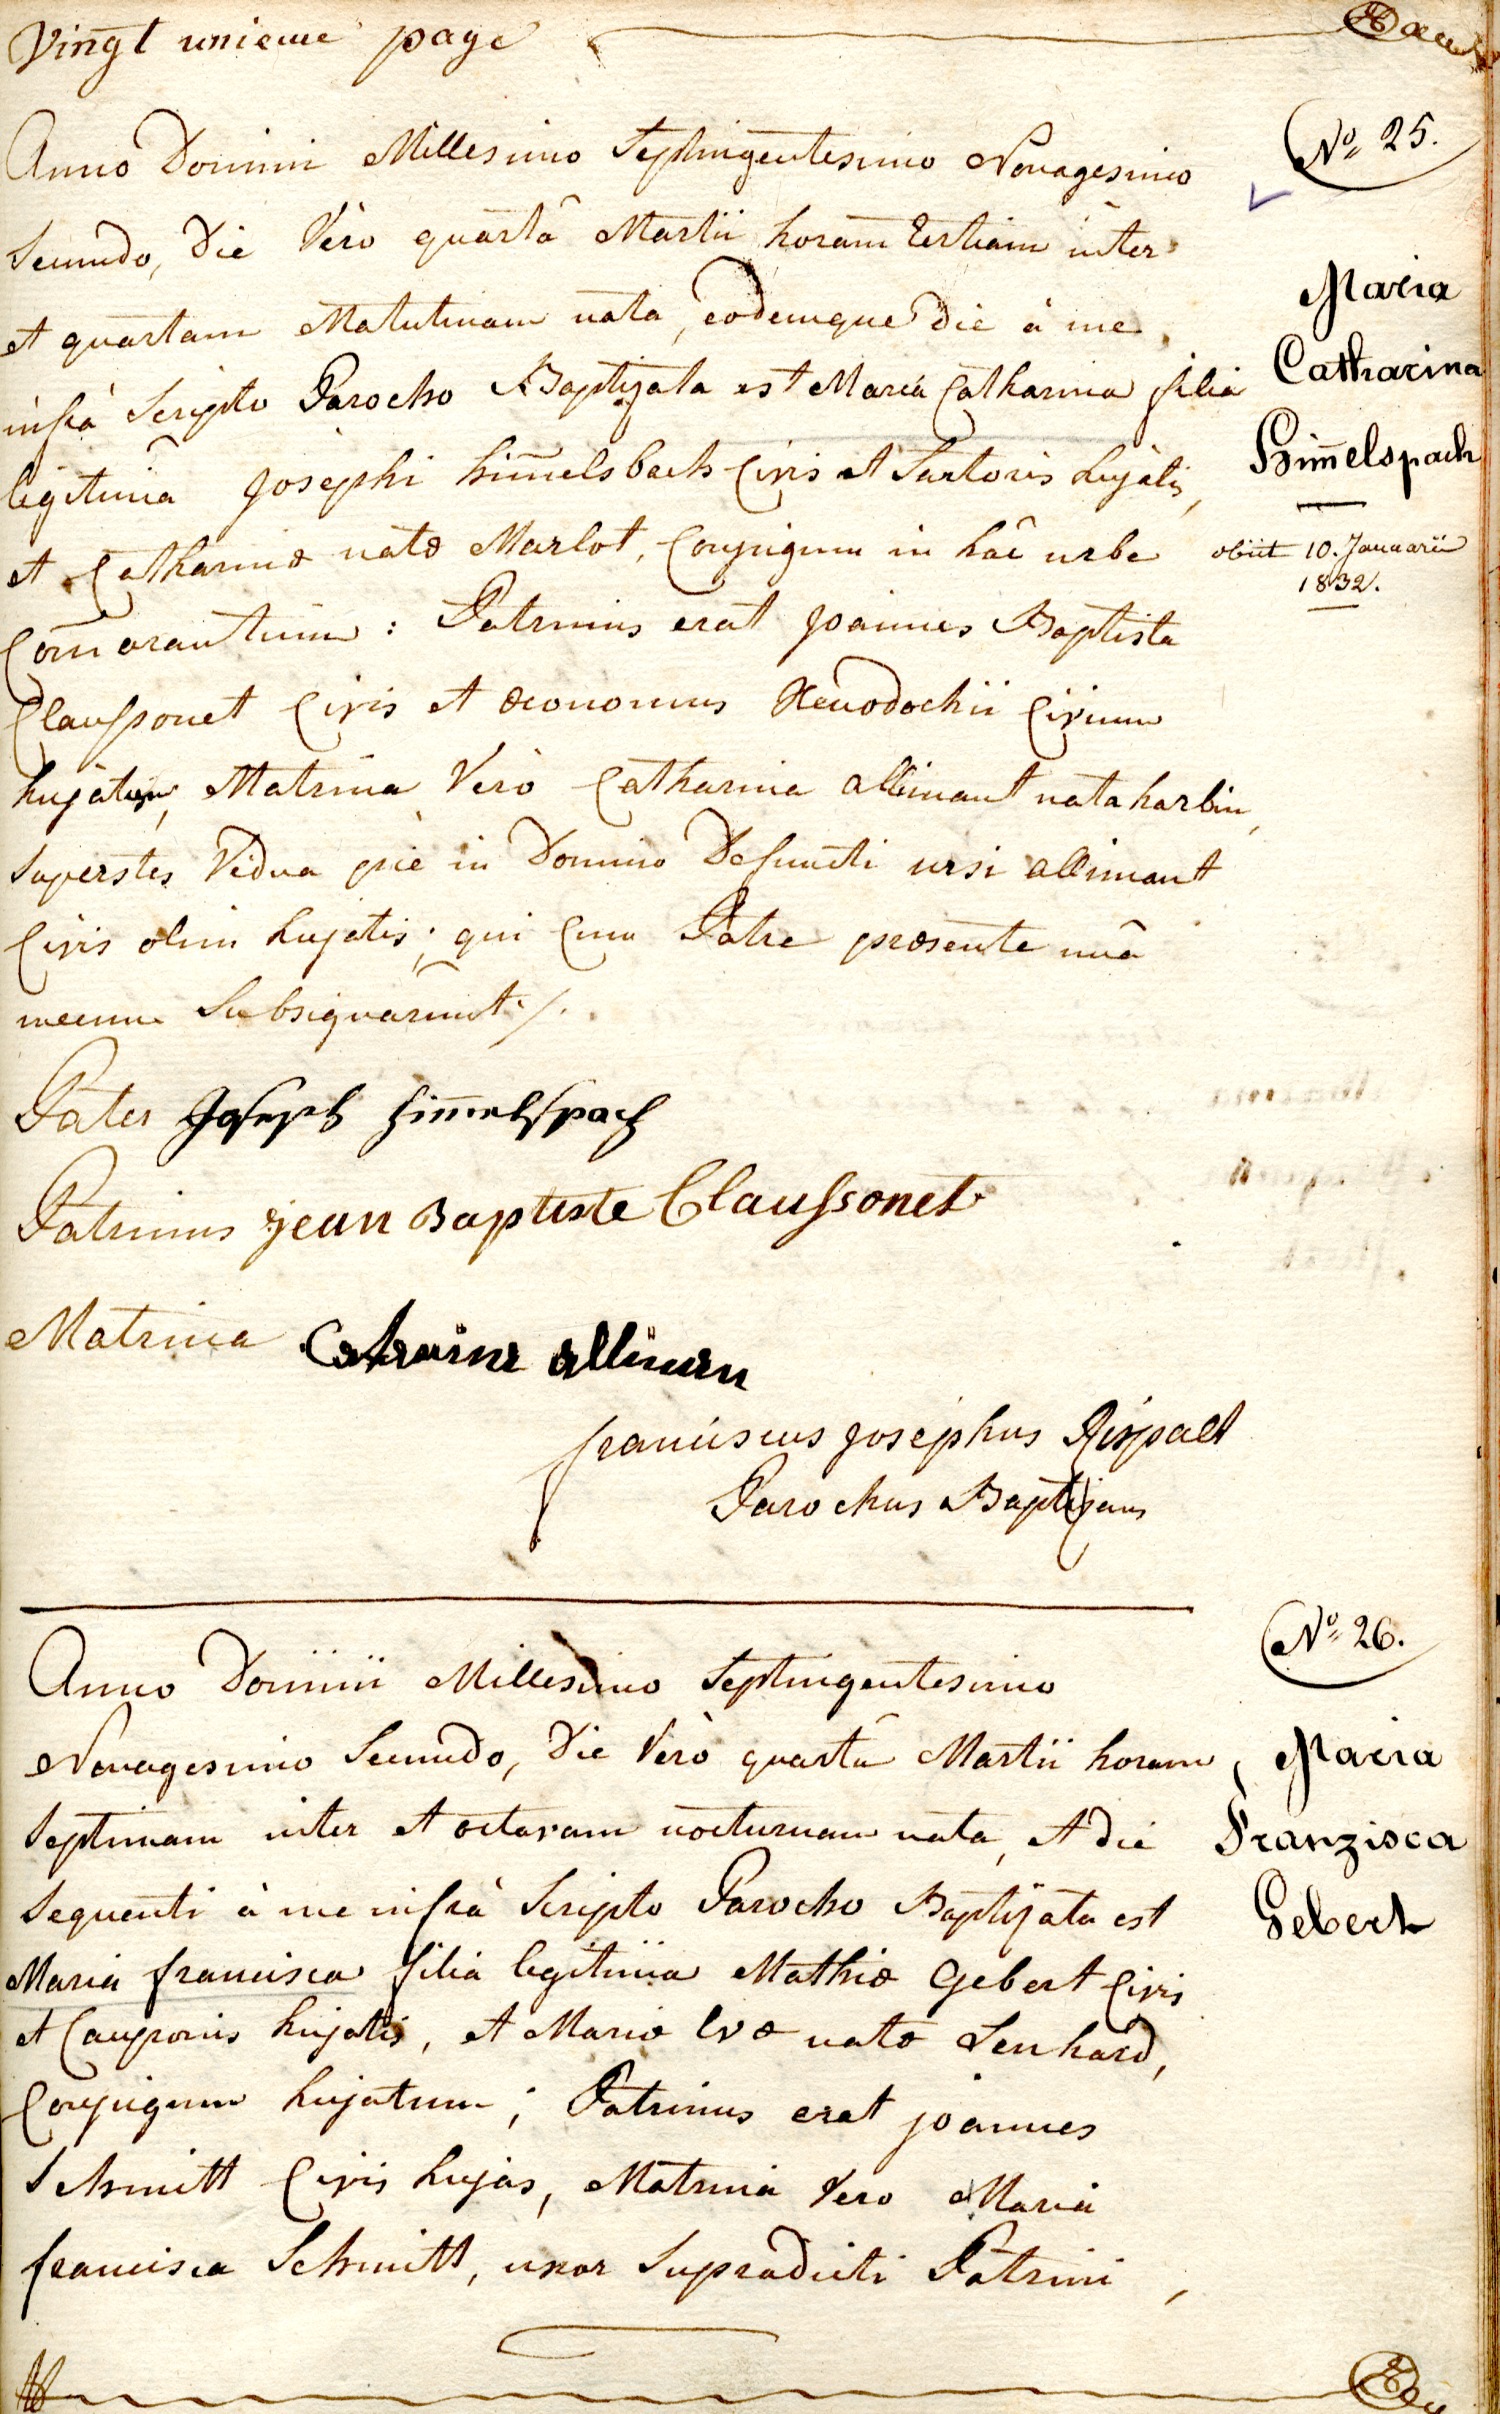 Vingt unieme page
Nº 25.
Anno Domini Millesimo Septingentesimo Nonagesimo
Secundo, Die Verò quartâ Martii horam tertiam inter
et quartam Matutinam nata, eodemque die à me
infrà Scripto Parocho Baptizata est Maria Catharina filia
legitima Josephi him̅elsbach Civis et Sartoris hujatis,
et Catharinæ natæ Marlot, Conjugum in hâc urbe
Com̅orantium : Patrinus erat Joannes Baptista
Claussonet Civis et œconomus Xenodochii Civium
hujatum, Matrina Verò Catharina allimant nata harbin,
Superstes Vidua piè in Domino Defuncti ursi allimant
Civis olim hujatis; qui Cum Patre præsente unâ
mecum Subsignârunt ./.
Maria
Catharina
Him̅elspach
obiit 10. Januarii
1832.
Pater Joseph Him̅elspach
Patrinus jean Baptiste Claussonet
Matrina Catraine allimen
franciscus josephus Rispalt
Parochus Baptizans
Nº 26.
Anno Dominii Millesimo Septingentesimo
Nonagesimo Secundo, Die Verò quartâ Martii horam
Septimam inter et octavam nocturnam nata, et die
Sequenti à me infrà Scripto Parocho Baptizata est
Maria francisca filia legitima Mathiæ Gebert Civis
et Cauponis hujatis, et Mariæ Evæ natæ Lenhard,
Conjugum hujatum; Patrinus erat joannes
Schmitt Civis hujas, Matrina Vero Maria
francisca Schmitt, uxor Supradicti Patrini,
Maria
Franzisca
Gebert